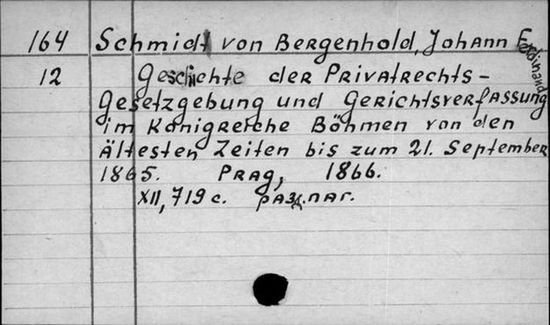 164 Schmidt von Bergenhold, Johann Ferdinand
12 Geschichte der Privatrechts-
Gesetzgebung und Gerichtsverfassung
im Königreiche Böhmen von den
Ältesten Zeiten bis zum 21. September
1865. Prag, 1866.
XII, 719 с. разд. паг.